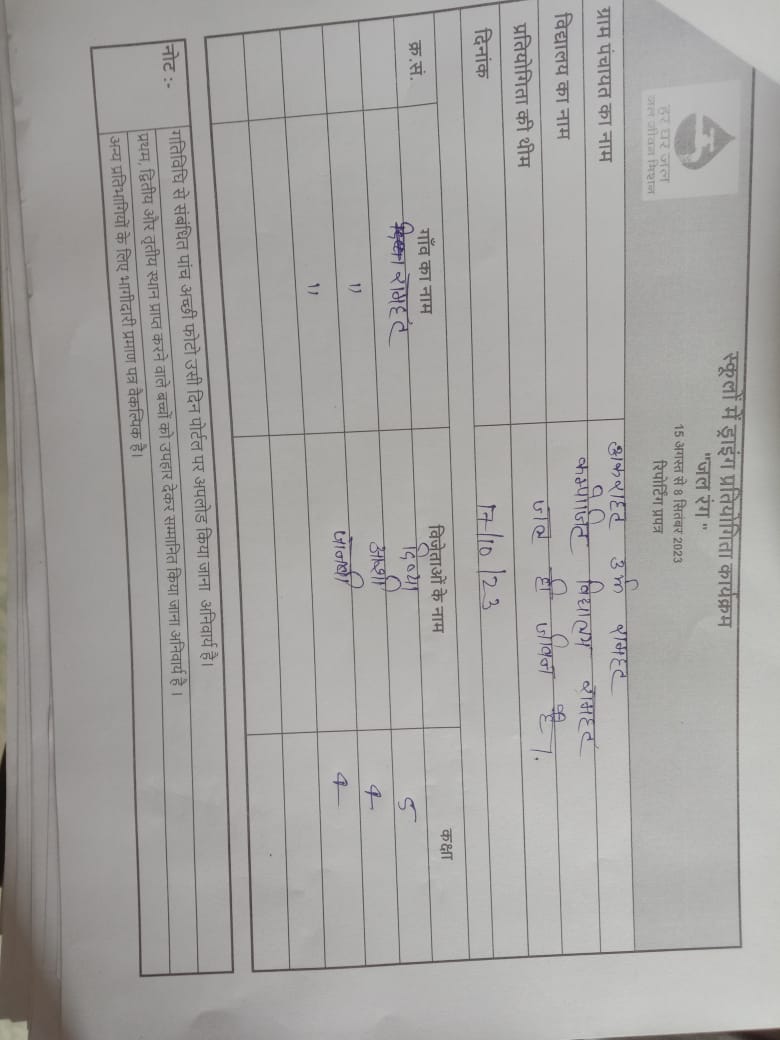 हर घर जल
जल जीवन मिशन
स्कूलों में ड्राइंग प्रतियोगिता कार्यक्रम
"जल रंग"
15 अगस्त से 8 सितंबर 2023
रिपोर्टिंग प्रपत्र
ग्राम पंचायत का नाम उर्फ
विद्यालय का नाम कम्पोजिट विद्यालय
प्रतियोगिता की थीम जल ही जीवन है।
दिनांक 17/10/23
क्र.सं. गाँव का नाम विजेताओं के नाम कक्षा
दिव्या 5
" 4
" 4
नोट :-
गतिविधि से संबंधित पांच अच्छी फोटो उसी दिन पोर्टल पर अपलोड किया जाना अनिवार्य है।
प्रथम, द्वितीय और तृतीय स्थान प्राप्त करने वाले बच्चों को उपहार देकर सम्मानित किया जाना अनिवार्य है।
अन्य प्रतिभागियों के लिए भागीदारी प्रमाण पत्र वैकल्पिक है।